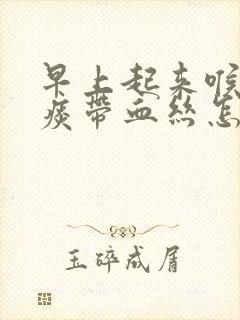 早上起来喉
痰带血丝怎
玉碎成屑